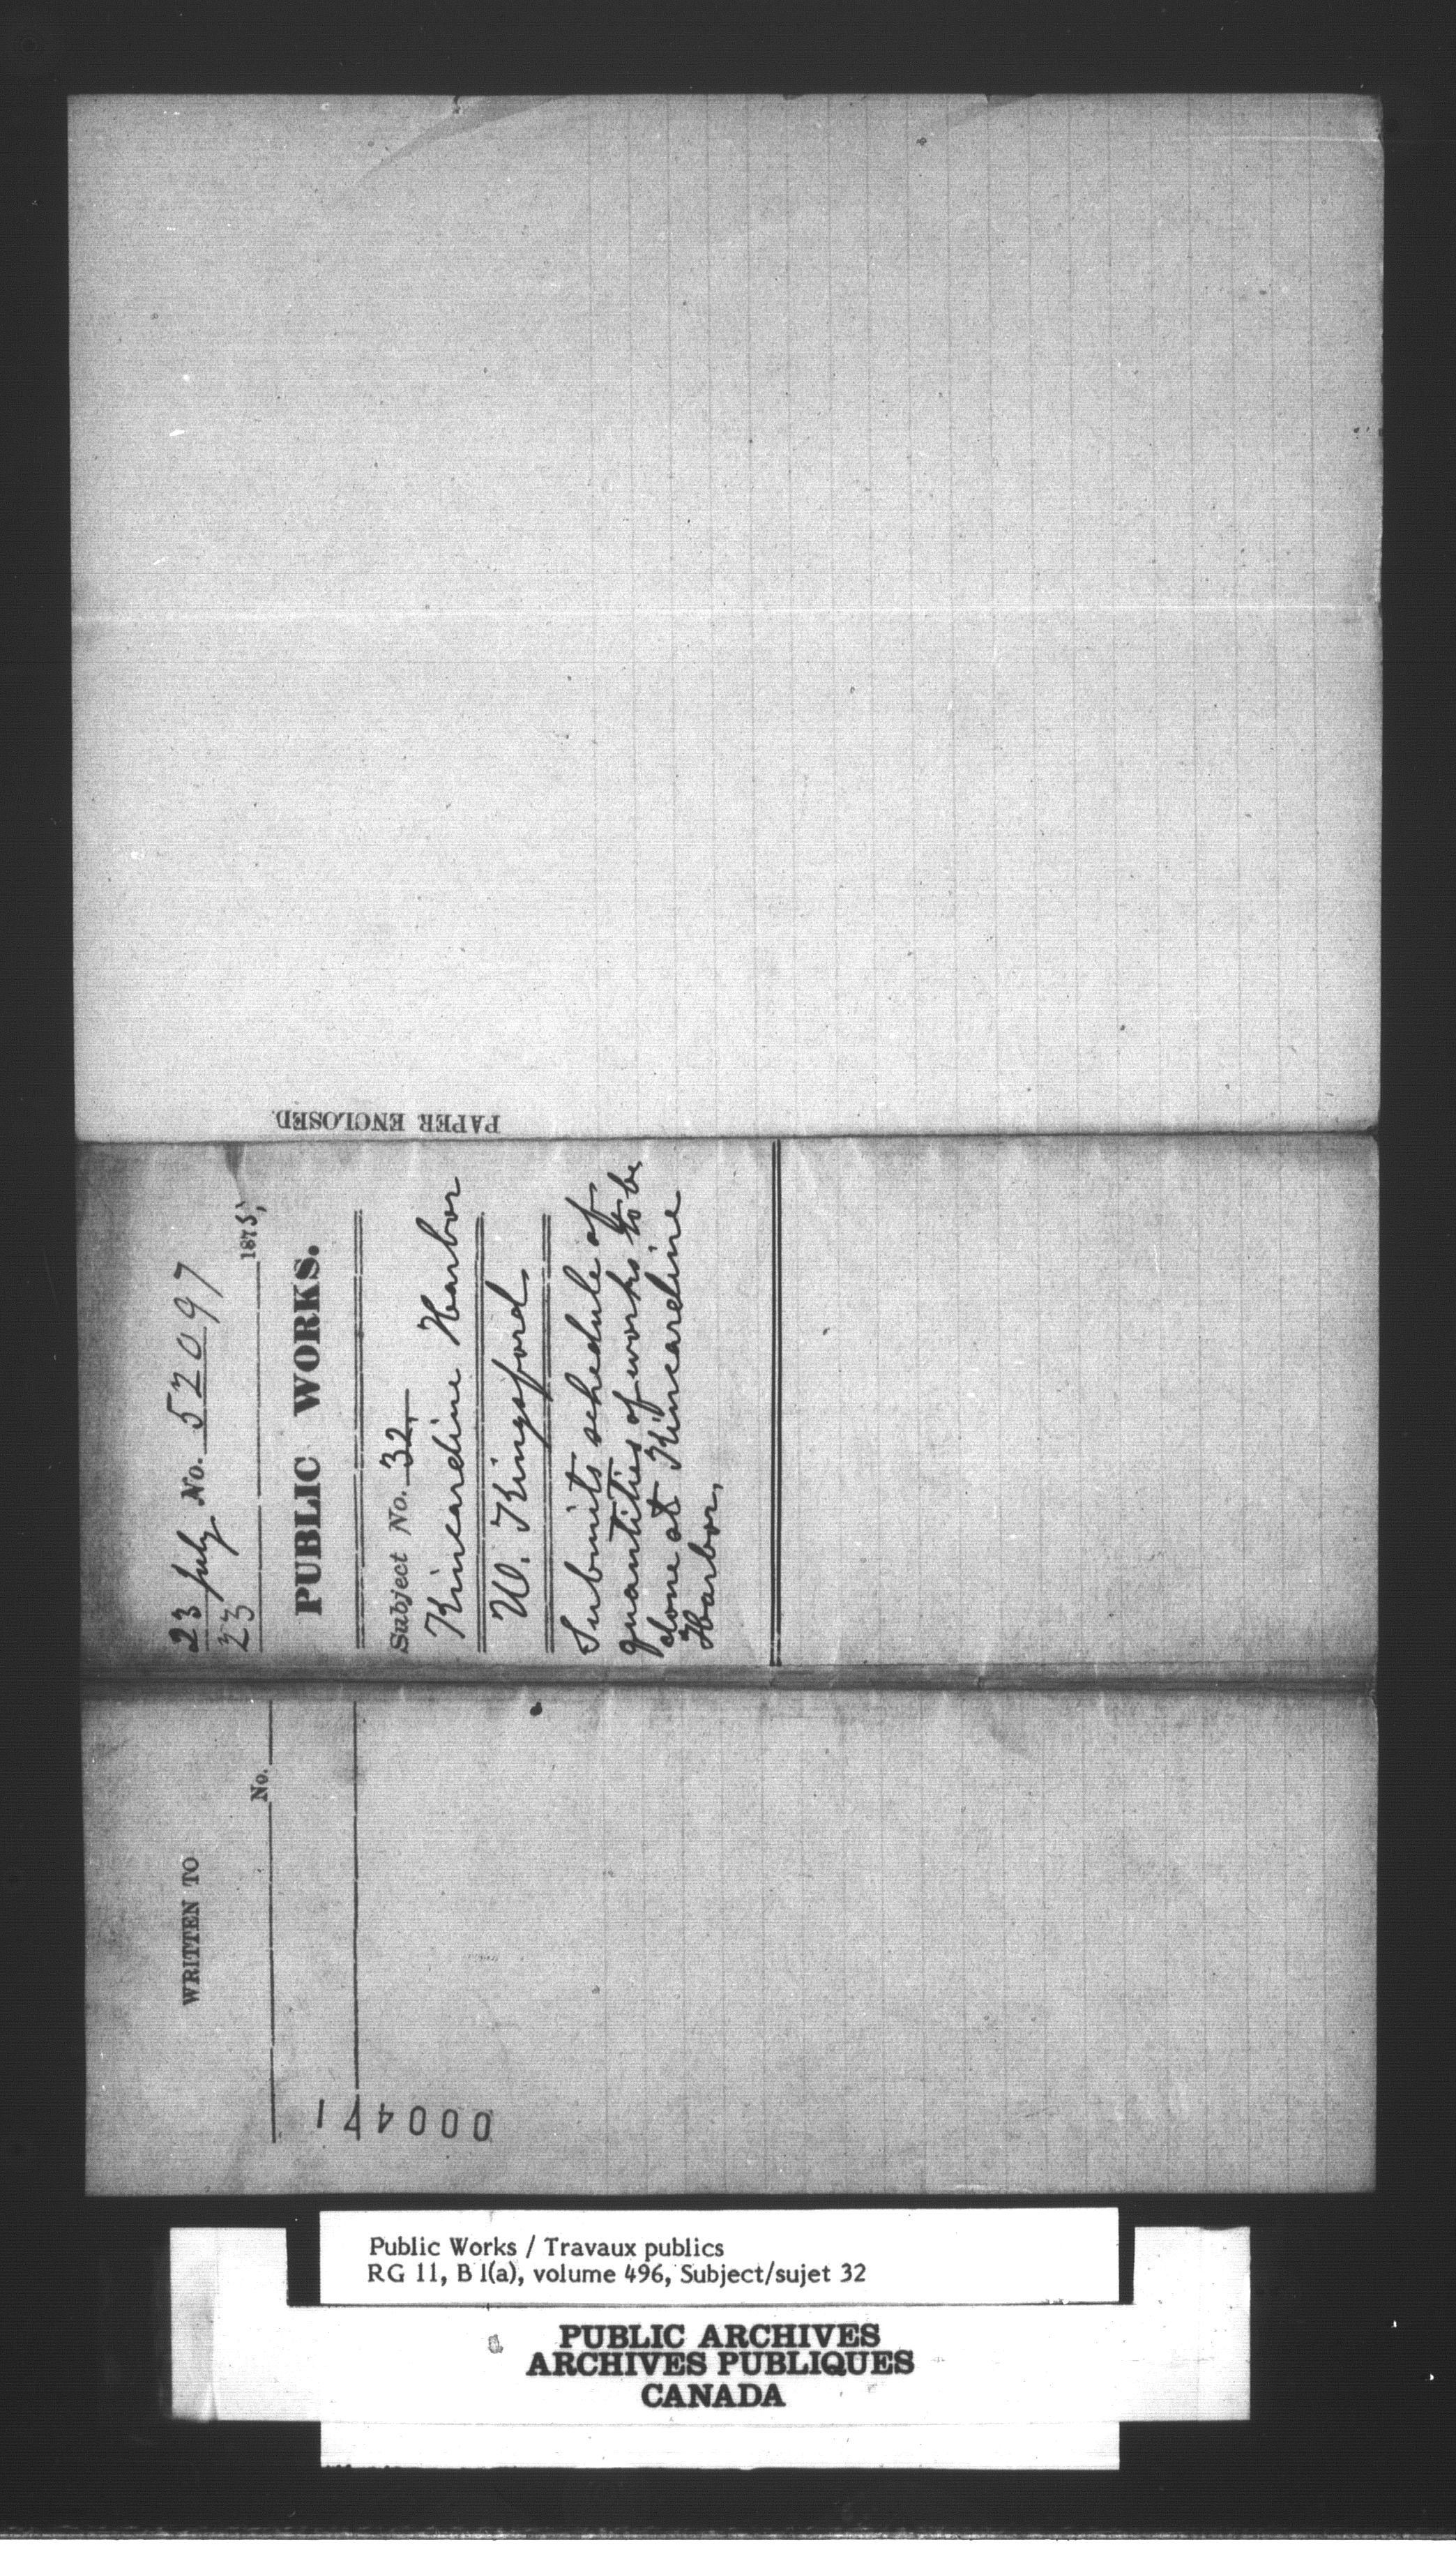 PAPER ENCLOSED.
23 July No. 52097
23 1875,
PUBLIC WORKS.
Subject No. 32.
Kincardine Harbor
W. Kingsford
Submits schedule of
quantities of works to be
done at Kincardine
Harbor.
WRITTEN TO
No.
000471
Public Works / Travaux publics
RG 11, B 1(a), volume 496, Subject/sujet 32
PUBLIC ARCHIVES
ARCHIVES PUBLIQUES
CANADA